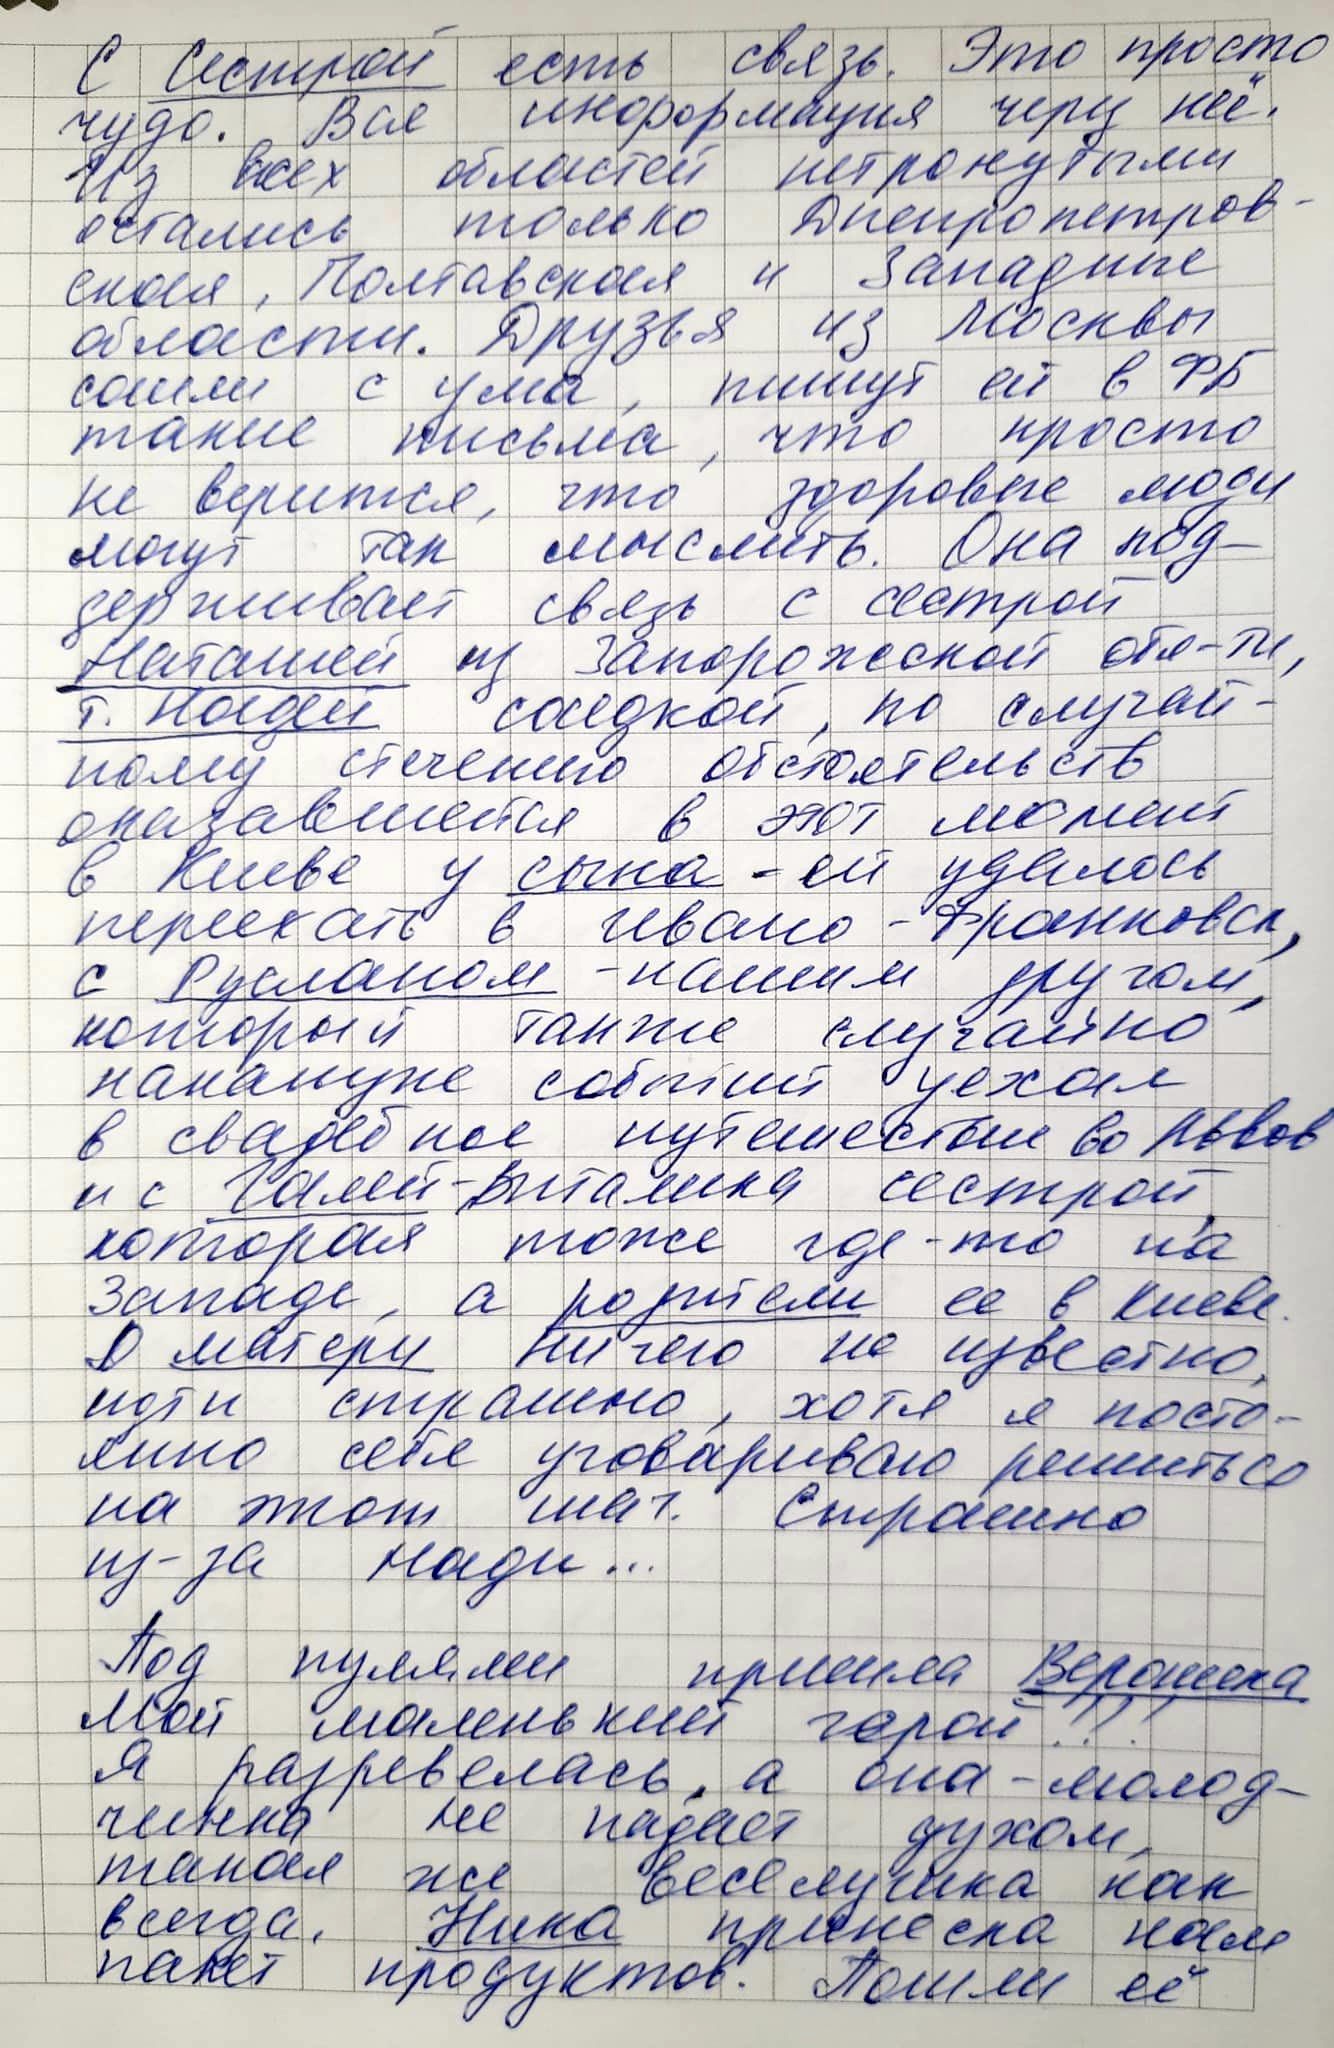 С Сестрой есть связь. Это просто
чудо. Вся информация через неё.
Из всех областей нетронутыми
остались только Днепропетров-
ская, Полтавская и Западные
области. Друзья из Москвы
сошли с ума, пишут ей в ФБ
такие письма, что просто
не верится, что здоровые люди
могут так мыслить. Она под-
держивает связь с сестрой
Наташей из Запорожской обл-ти,
т. Надей соседкой, по случай-
ному стечению обстоятельств
оказавшейся в этот момент
в Киеве у сына - ей удалось
переехать в Ивано-Франковск,
с Русланом - нашим другом,
который также случайно
накануне событий уехал
в свадебное путешествие во Львов
и с Галей - Виталика сестрой,
которая тоже где-то на
Западе, а родители ее в Киеве.
О матери ничего не известно,
идти страшно, хотя я посто-
янно себя уговариваю решиться
на этот шаг. Страшно
из-за Нади...
Под пулями пришла Верошека
Мой маленький герой!!!
Я разревелась, а она - молод-
чинка не падает духом,
такая же веселушка как
всегда. Ника принесла нам
пакет продуктов. Пошли её